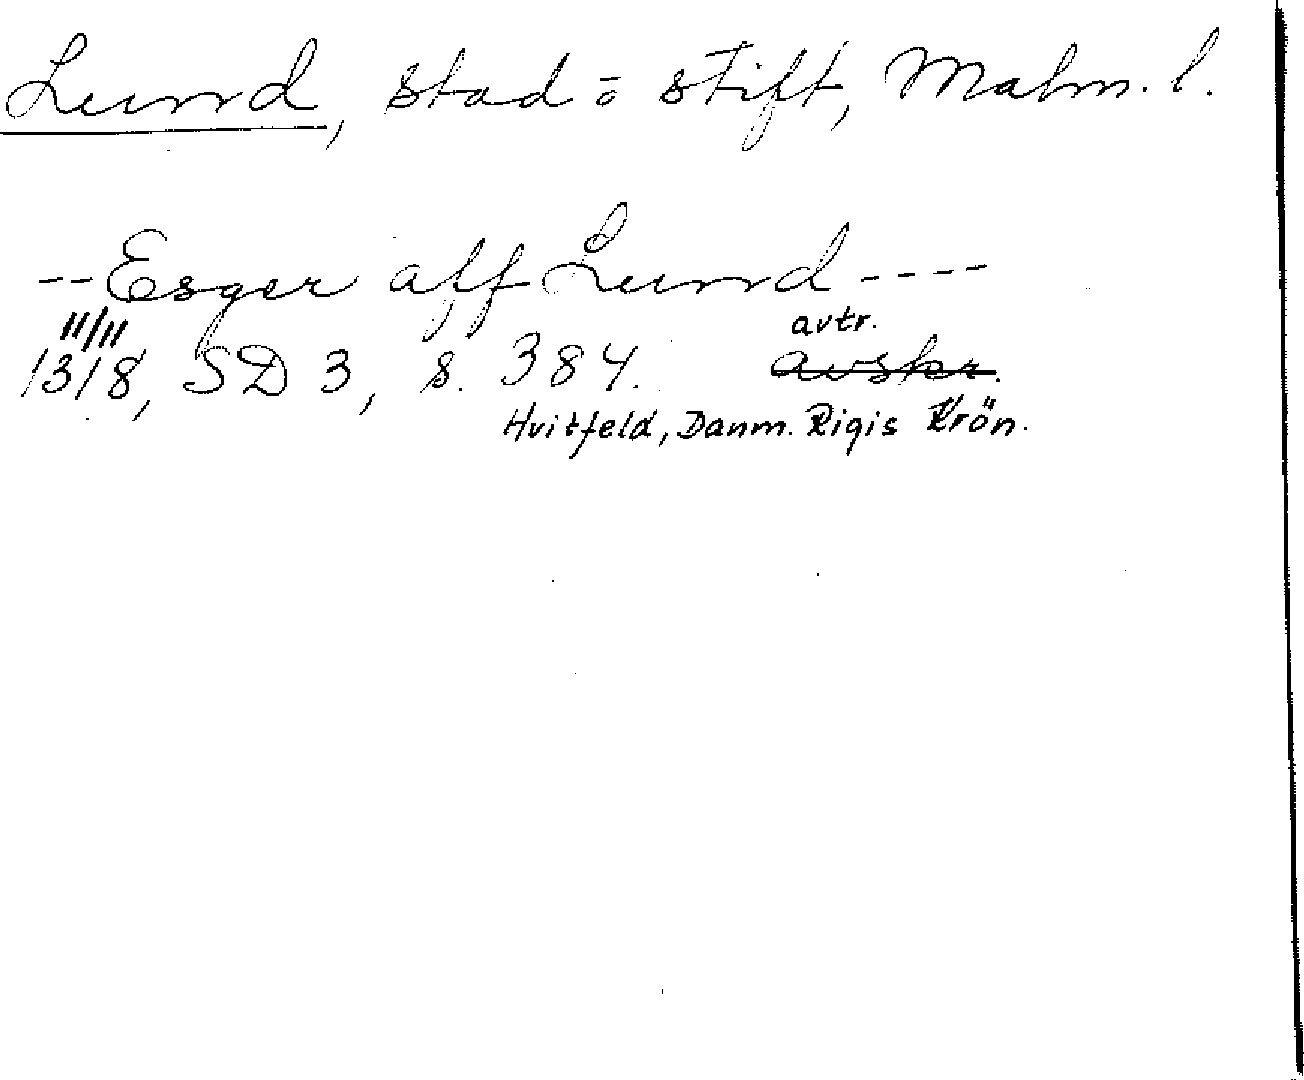 Lund, stad o stift, Malm. l.
--Esger aff Lund----
11/11 avtr.
1318, SD 3, s. 384. avskr.
Hvitfeld, Danm. Rigis Krön.